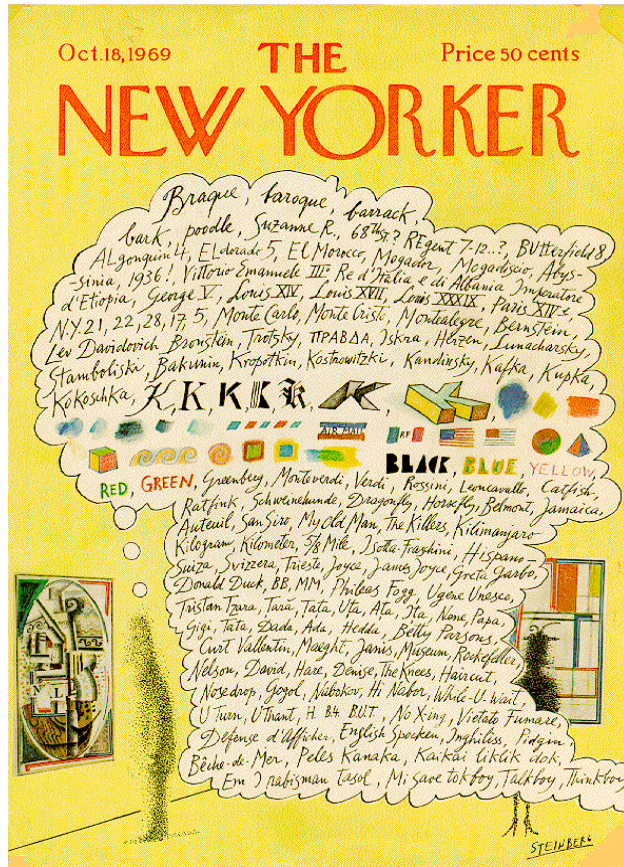 Oct. 18, 1969 THE Price 50 cents
NEW YORKER
Braque, baroque, barrack,
bark, poodle, Suzanne R., 68th St.? REgent 7-12..?, BUtterfield 8,
ALgonquin 4, ELdorado 5, El Morocco, Mogador, Mogadiscio, Abys-
-sinia, 1936! Vittorio Emanuele III° Re d'Italia e di Albania Imperatore
d'Etiopia, George V, Louis XIV, Louis XVII, Louis XXXIX, Paris XIVe,
N.Y. 21, 22, 28, 17, 5, Monte Carlo, Monte Cristo, Montealegre, Bernstein,
Lev Davidovich Bronstein, Trotzky, ПРАВДА, Iskra, Herzen, Lunacharsky,
Stamboliski, Bakunin, Kropotkin, Kostrowitzki, Kandinsky, Kafka, Kupka,
Kokoschka, K, K, K, K, K, K, K,
AIR MAIL RF
BLACK, BLUE, YELLOW,
RED, GREEN, Greenberg, Monteverdi, Verdi, Rossini, Leoncavallo, Catfish,
Ratfink, Schweinehunde, Dragonfly, Horsefly, Belmont, Jamaica,
Auteuil, San Siro, My Old Man, The Killers, Kilimanjaro
Kilogram, Kilometer, 5/8 Mile, Isotta-Fraschini, Hispano-
Suiza, Svizzera, Trieste, Joyce, James Joyce, Greta Garbo,
Donald Duck, BB, MM, Phileas Fogg, Ugene Unesco,
Tristan Tzara, Tara, Tata, Uta, Ata, Ita, None, Papa,
Gigi, Tata, Dada, Ada, Hedda, Betty Parsons,
Curt Valentin, Maeght, Janis, Museum, Rockefeller,
Nelson, David, Hare, Denise, The Knees, Haircut,
Nosedrop, Gogol, Nabokov, Hi Nabor, While-U-Wait,
U Turn, U Thant, H. B4. B.U.T., No X-ing, Vietato Fumare,
Défense d'Afficher, English Spocken, Inghiliss, Pidgin
Bêche-de-Mer, Peles Kanaka, Kaikai liklik dok,
Em I rabisman tasol, Mi save tokboy, Talkboy, Thinkboy
STEINBERG